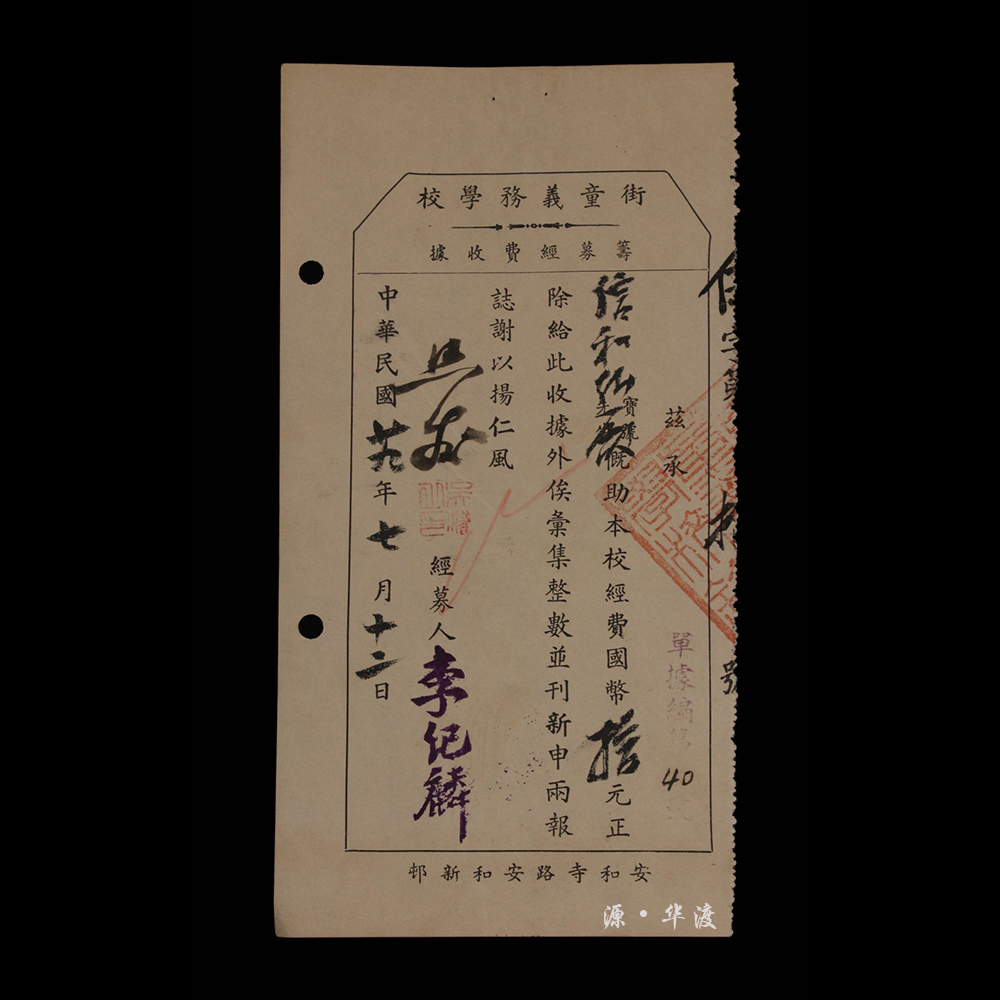 街童義務學校
籌募經費收據
字第
號
茲承
單據編號 40 號
信和紗廠寶號慨助本校經費國幣拾元正
除給此收據外俟彙集整數並刊新申兩報
誌謝以揚仁風
經募人李紀麟
中華民國廿九年七月十二日
安和寺路安和新邨
源·华渡